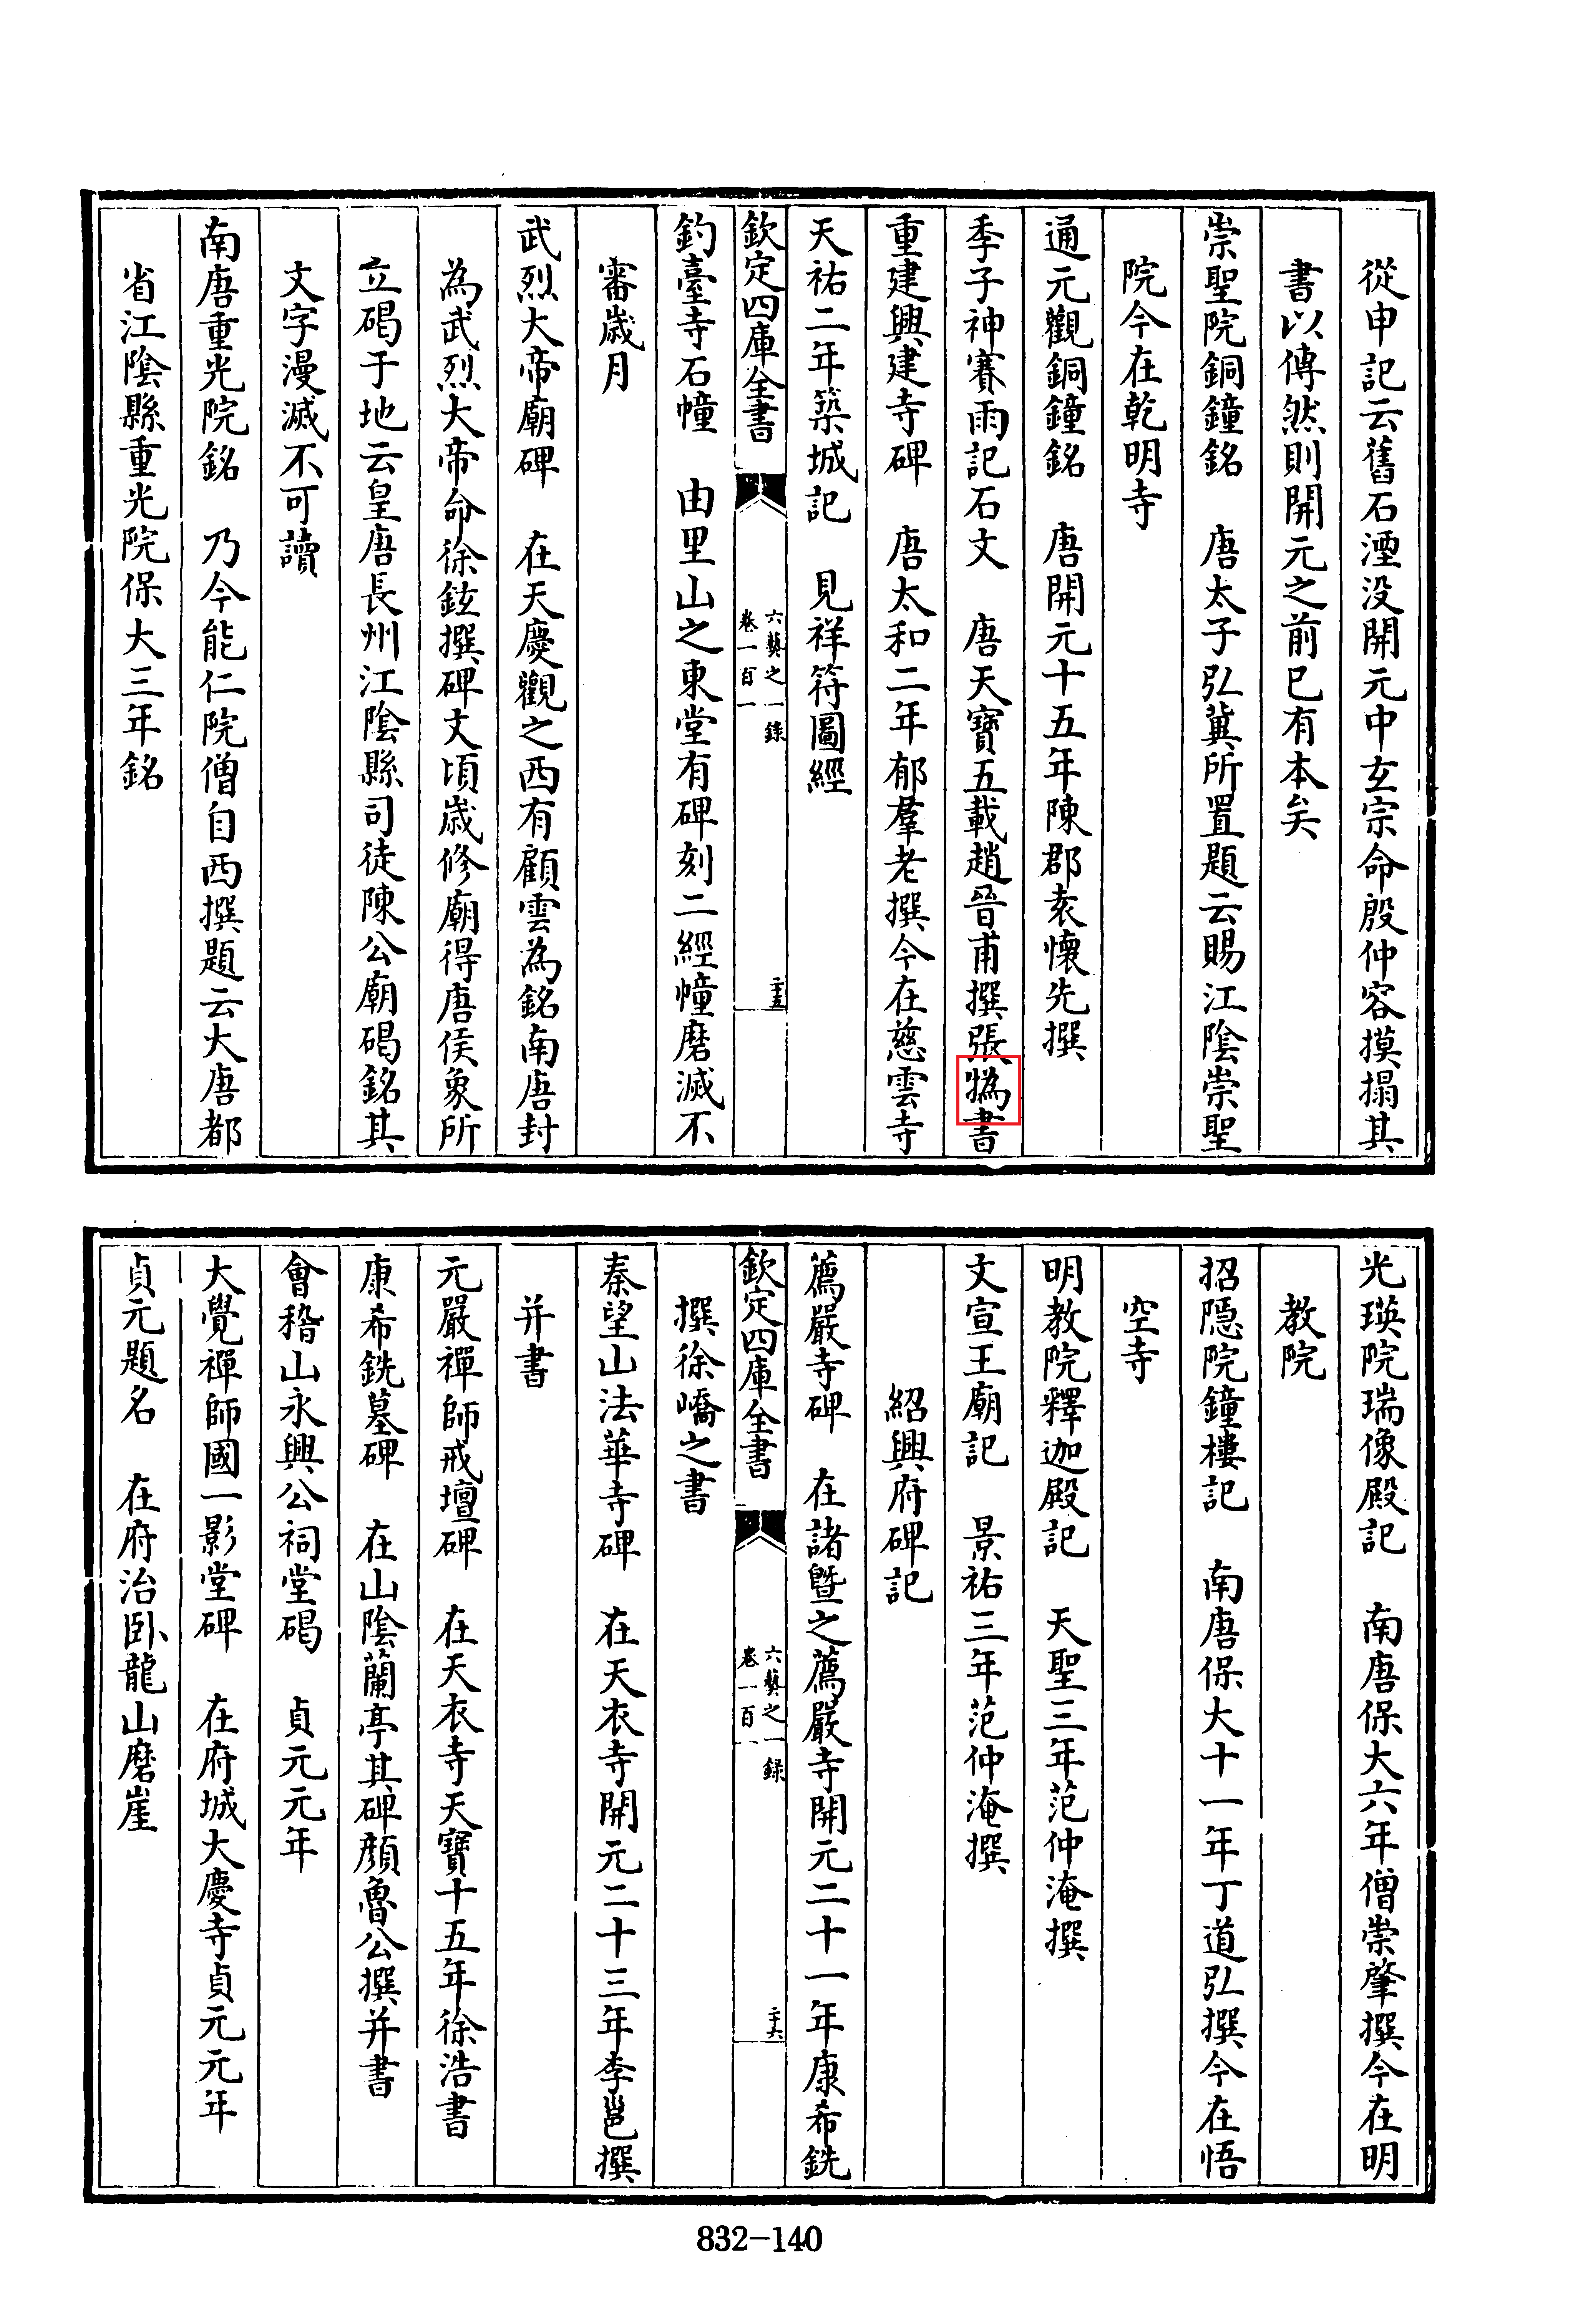 從申記云舊石湮没開元中玄宗命殷仲容摸搨其
書以傳然則開元之前已有本矣
崇聖院銅鐘銘　唐太子弘冀所置題云賜江陰崇聖
院今在乾明寺
通元觀銅鐘銘　唐開元十五年陳郡袁懷先撰
季子神賽雨記石文　唐天寶五載趙晉甫撰張書
重建興建寺碑　唐太和二年郁羣老撰今在慈雲寺
天祐二年築城記　見祥符圖經
欽定四庫全書
六藝之一錄
卷一百一
二十五
釣臺寺石幢　由里山之東堂有碑刻二經幢磨滅不
審歲月
武烈大帝廟碑　在天慶觀之西有顧雲為銘南唐封
為武烈大帝命徐鉉撰碑文頃歲修廟得唐侯象所
立碣于地云皇唐長州江陰縣司徒陳公廟碣銘其
文字漫滅不可讀
南唐重光院銘　乃今能仁院僧自西撰題云大唐都
省江陰縣重光院保大三年銘
光瑛院瑞像殿記　南唐保大六年僧崇肇撰今在明
教院
招隱院鐘樓記　南唐保大十一年丁道弘撰今在悟
空寺
明教院釋迦殿記　天聖三年范仲淹撰
文宣王廟記　景祐三年范仲淹撰
紹興府碑記
薦嚴寺碑　在諸暨之薦嚴寺開元二十一年康希銑
欽定四庫全書
六藝之一錄
卷一百一
二十六
撰徐嶠之書
秦望山法華寺碑　在天衣寺開元二十三年李邕撰
并書
元嚴禪師戒壇碑　在天衣寺天寶十五年徐浩書
康希銑墓碑　在山陰蘭亭其碑顏魯公撰并書
會稽山永興公祠堂碣　貞元元年
大覺禪師國一影堂碑　在府城大慶寺貞元元年
貞元題名　在府治卧龍山磨崖
832-140